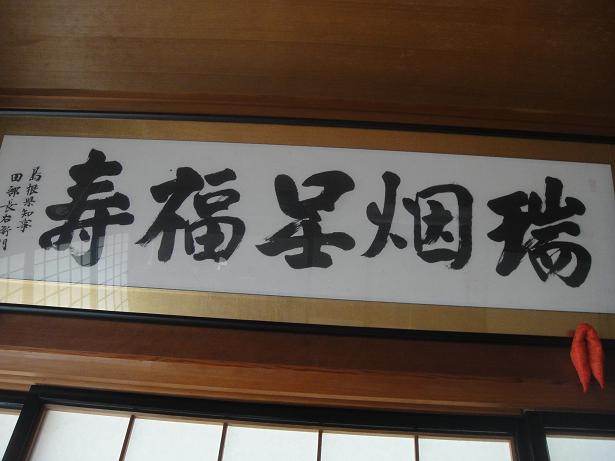 瑞烟呈福寿
島根県知事
田部長右衛門